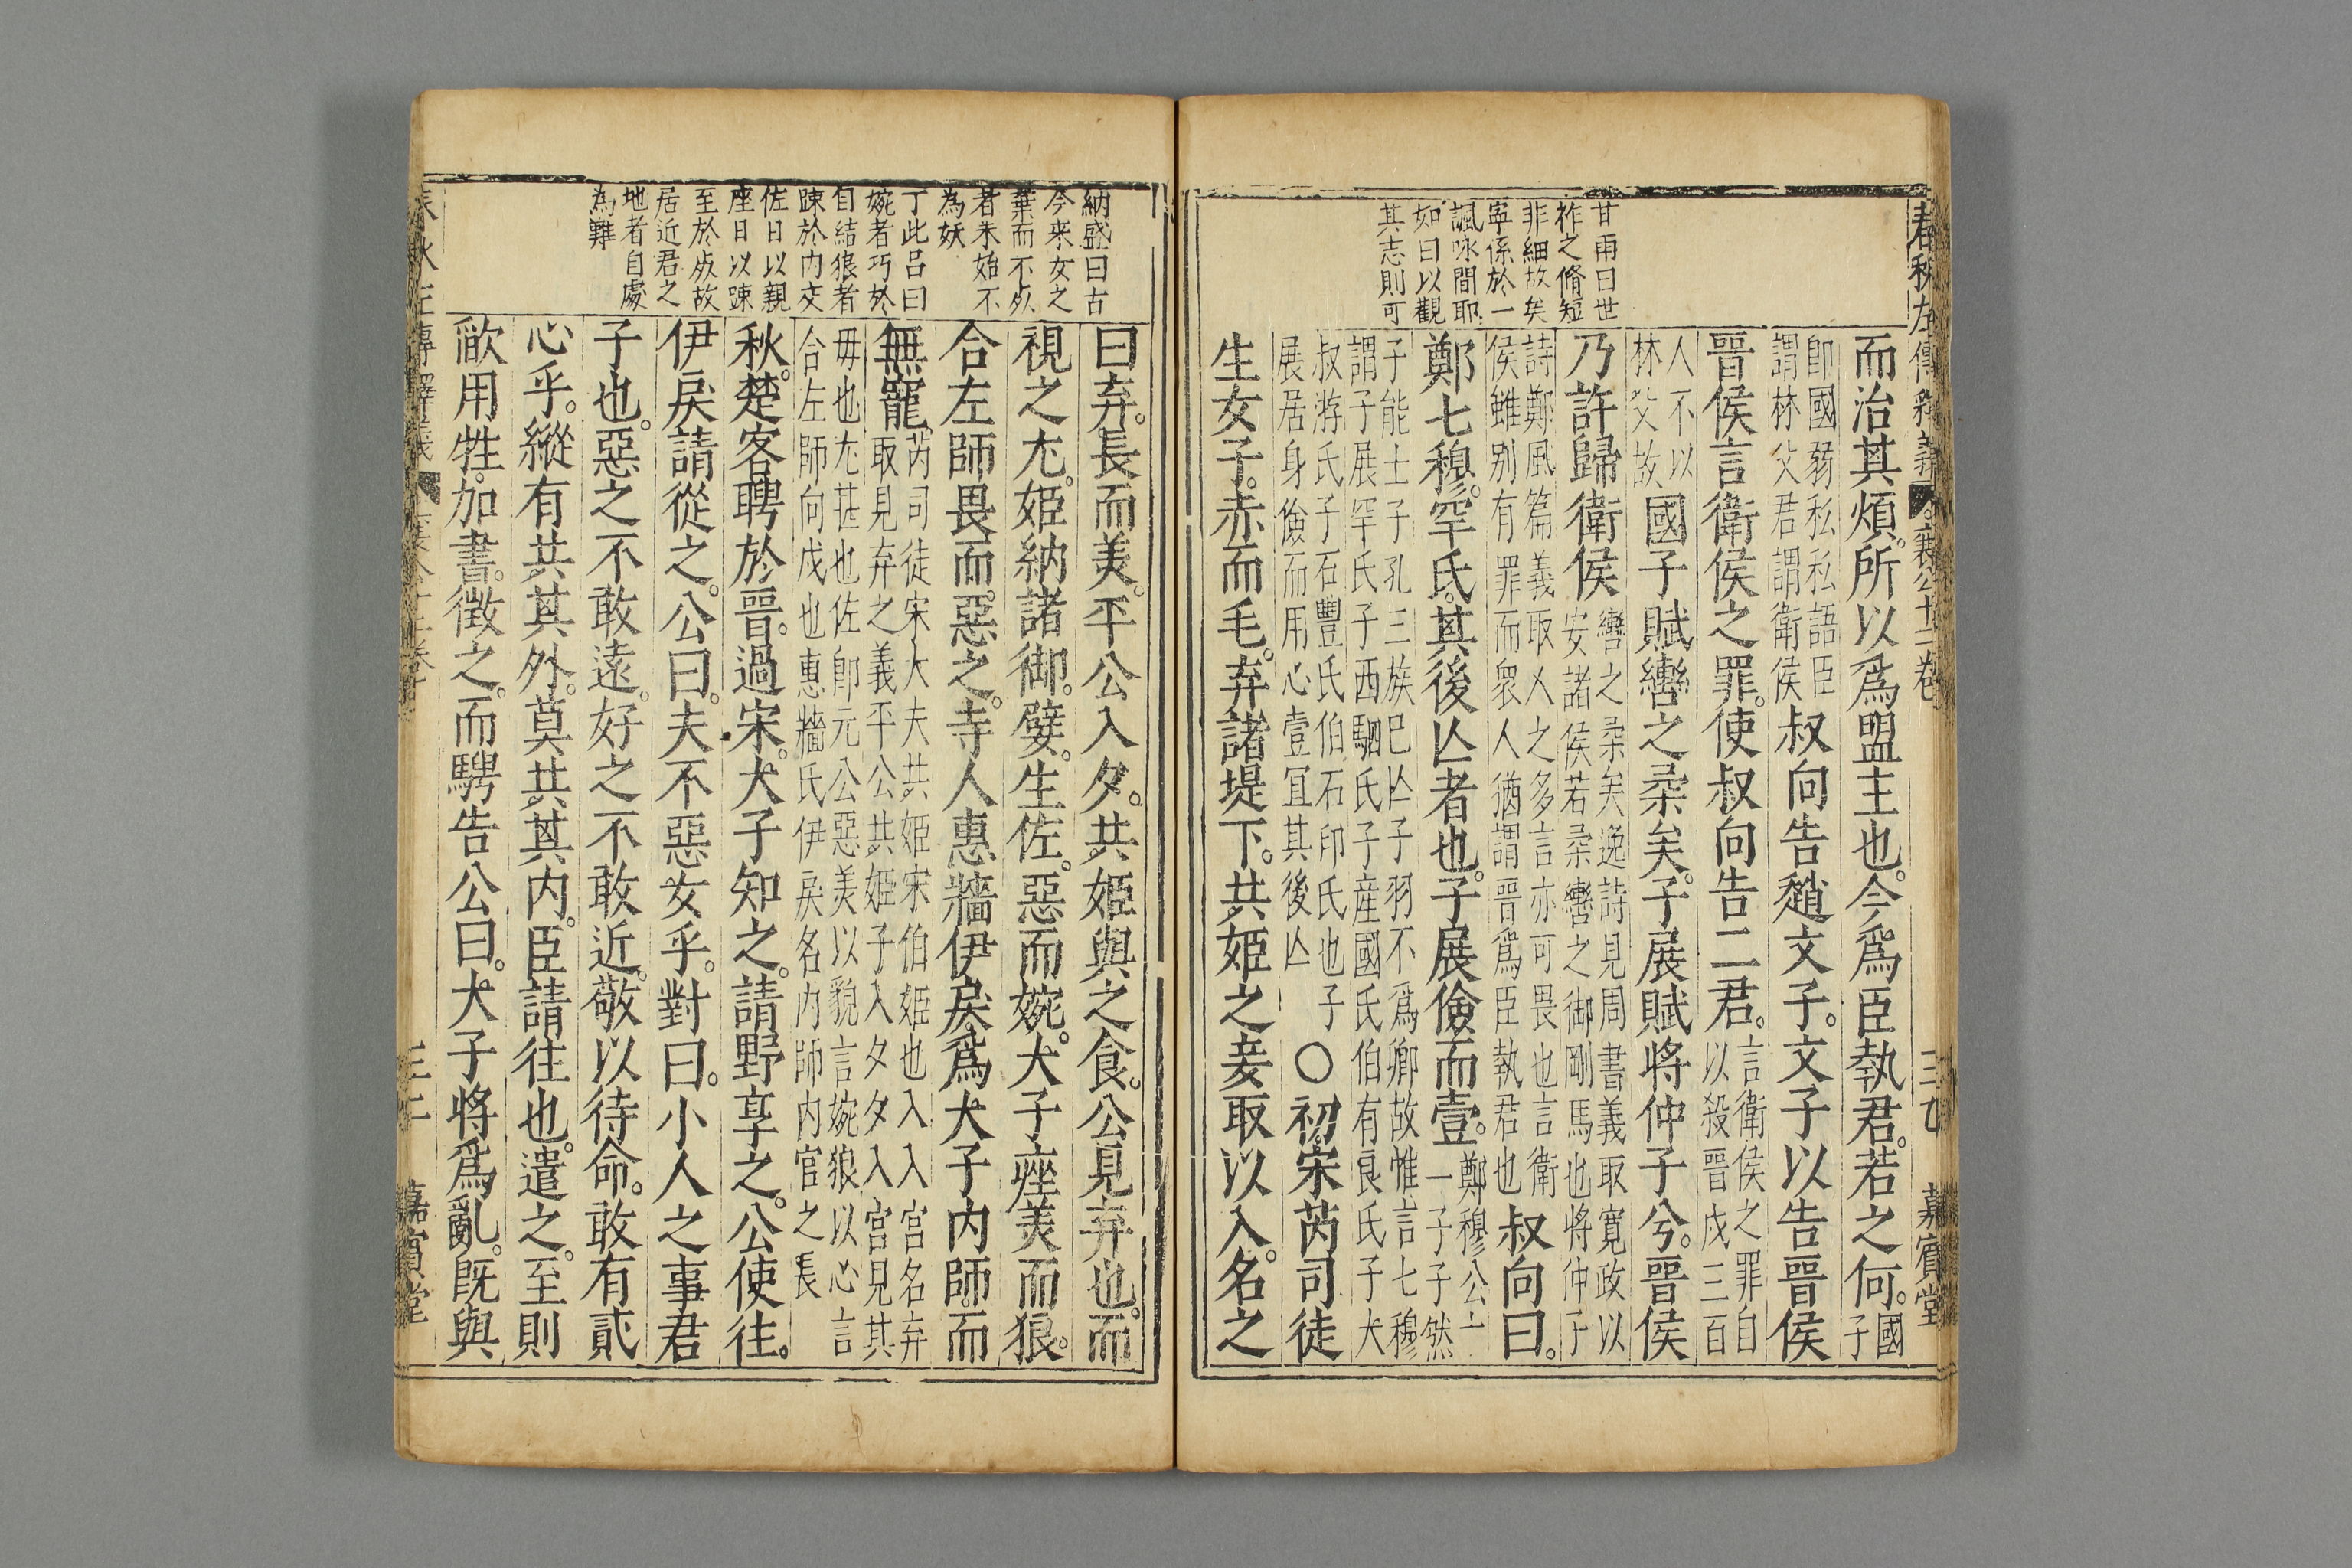 春秋左傳釋義
襄公十二卷
嘉賓堂
甘雨曰世
祚之脩短
非細故矣
寧係於一
諷咏間耶
如曰以觀
其志則可
而治其煩。所以爲盟主也。今爲臣執君。若之何。國子
即國弱私私語臣
謂林父君謂衛侯
叔向告趙文子。文子以告晉侯
晉侯言衛侯之罪。使叔向告二君。
言衛侯之罪自
以殺晉戍三百
人不以
林父故
國子賦轡之柔矣。子展賦將仲子兮。晉侯
乃許歸衛侯
轡之柔矣逸詩見周書義取寬政以
安諸侯若柔轡之御剛馬也將仲子
詩鄭風篇義取人之多言亦可畏也言衛
侯雖別有罪而衆人猶謂晉爲臣執君也
叔向曰。
鄭七穆。罕氏。其後亾者也。子展儉而壹。
鄭穆公十
一子子然
子能士子孔三族已亾子羽不爲卿故惟言七穆
謂子展罕氏子西駟氏子産國氏伯有良氏子大
叔游氏子石豐氏伯石印氏也子
展居身儉而用心壹宜其後亾
〇初宋芮司徒
生女子。赤而毛。弃諸堤下。共姬之妾取以入。名之
納盛曰古
今来女之
棄而不死
者未始不
為妖
丁此吕曰
婉者巧於
自結狠者
踈於内交
佐日以親
座日以踈
至於死故
居近君之
地者自處
為難
曰弃。長而美。平公入夕。共姬與之食。公見弃也。而
視之尤。姬納諸御。嬖。生佐。惡而婉。大子痤美而狠。
合左師畏而惡之。寺人惠牆伊戾爲大子内師。而
無寵。
芮司徒宋大夫共姬宋伯姬也入入宮名弃
取見弃之義平公共姬子入夕夕入宮見其
毋也尤甚也佐即元公惡美以貌言婉狠以心言
合左師向戌也惠牆氏伊戾名内師内官之長
秋。楚客聘於晉。過宋。大子知之。請野享之。公使往。
伊戾請從之。公曰。夫不惡女乎。對曰。小人之事君
子也。惡之不敢遠。好之不敢近。敬以待命。敢有貳
心乎。縱有共其外。莫共其内。臣請往也。遣之。至則
歃用牲。加書。徵之。而騁告公曰。大子將爲亂。旣與
嘉賓堂